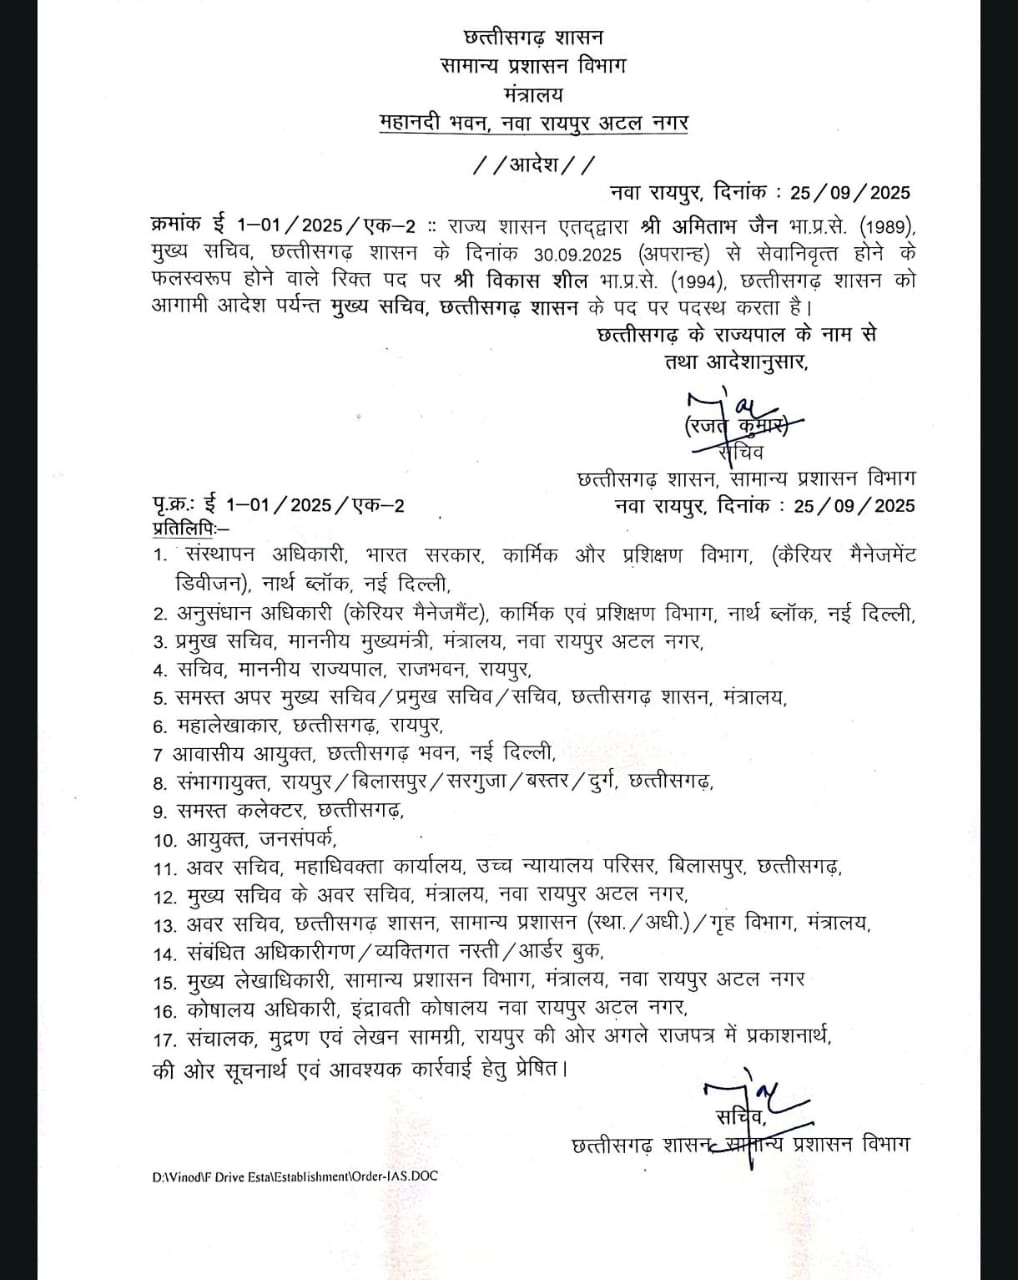 छत्तीसगढ़ शासन
सामान्य प्रशासन विभाग
मंत्रालय
महानदी भवन, नवा रायपुर अटल नगर
//आदेश//
नवा रायपुर, दिनांक : 25/09/2025
क्रमांक ई 1–01/2025/एक–2 :: राज्य शासन एतद्द्वारा श्री अमिताभ जैन भा.प्र.से. (1989),
मुख्य सचिव, छत्तीसगढ़ शासन के दिनांक 30.09.2025 (अपरान्ह) से सेवानिवृत्त होने के
फलस्वरूप होने वाले रिक्त पद पर श्री विकास शील भा.प्र.से. (1994), छत्तीसगढ़ शासन को
आगामी आदेश पर्यन्त मुख्य सचिव, छत्तीसगढ़ शासन के पद पर पदस्थ करता है।
छत्तीसगढ़ के राज्यपाल के नाम से
तथा आदेशानुसार,
(रजत कुमार)
सचिव
छत्तीसगढ़ शासन, सामान्य प्रशासन विभाग
पृ.क्र.: ई 1–01/2025/एक–2 नवा रायपुर, दिनांक : 25/09/2025
प्रतिलिपिः–
1. संस्थापन अधिकारी, भारत सरकार, कार्मिक और प्रशिक्षण विभाग, (कैरियर मैनेजमेंट
डिवीजन), नार्थ ब्लॉक, नई दिल्ली,
2. अनुसंधान अधिकारी (केरियर मैनेजमैंट), कार्मिक एवं प्रशिक्षण विभाग, नार्थ ब्लॉक, नई दिल्ली,
3. प्रमुख सचिव, माननीय मुख्यमंत्री, मंत्रालय, नवा रायपुर अटल नगर,
4. सचिव, माननीय राज्यपाल, राजभवन, रायपुर,
5. समस्त अपर मुख्य सचिव/प्रमुख सचिव/सचिव, छत्तीसगढ़ शासन, मंत्रालय,
6. महालेखाकार, छत्तीसगढ़, रायपुर,
7 आवासीय आयुक्त, छत्तीसगढ़ भवन, नई दिल्ली,
8. संभागायुक्त, रायपुर/बिलासपुर/सरगुजा/बस्तर/दुर्ग, छत्तीसगढ़,
9. समस्त कलेक्टर, छत्तीसगढ़,
10. आयुक्त, जनसंपर्क,
11. अवर सचिव, महाधिवक्ता कार्यालय, उच्च न्यायालय परिसर, बिलासपुर, छत्तीसगढ़,
12. मुख्य सचिव के अवर सचिव, मंत्रालय, नवा रायपुर अटल नगर,
13. अवर सचिव, छत्तीसगढ़ शासन, सामान्य प्रशासन (स्था./अधी.)/गृह विभाग, मंत्रालय,
14. संबंधित अधिकारीगण/व्यक्तिगत नस्ती/आर्डर बुक,
15. मुख्य लेखाधिकारी, सामान्य प्रशासन विभाग, मंत्रालय, नवा रायपुर अटल नगर
16. कोषालय अधिकारी, इंद्रावती कोषालय नवा रायपुर अटल नगर,
17. संचालक, मुद्रण एवं लेखन सामग्री, रायपुर की ओर अगले राजपत्र में प्रकाशनार्थ,
की ओर सूचनार्थ एवं आवश्यक कार्रवाई हेतु प्रेषित।
सचिव,
छत्तीसगढ़ शासन, सामान्य प्रशासन विभाग
D:\Vinod\F Drive Esta\Establishment\Order-IAS.DOC